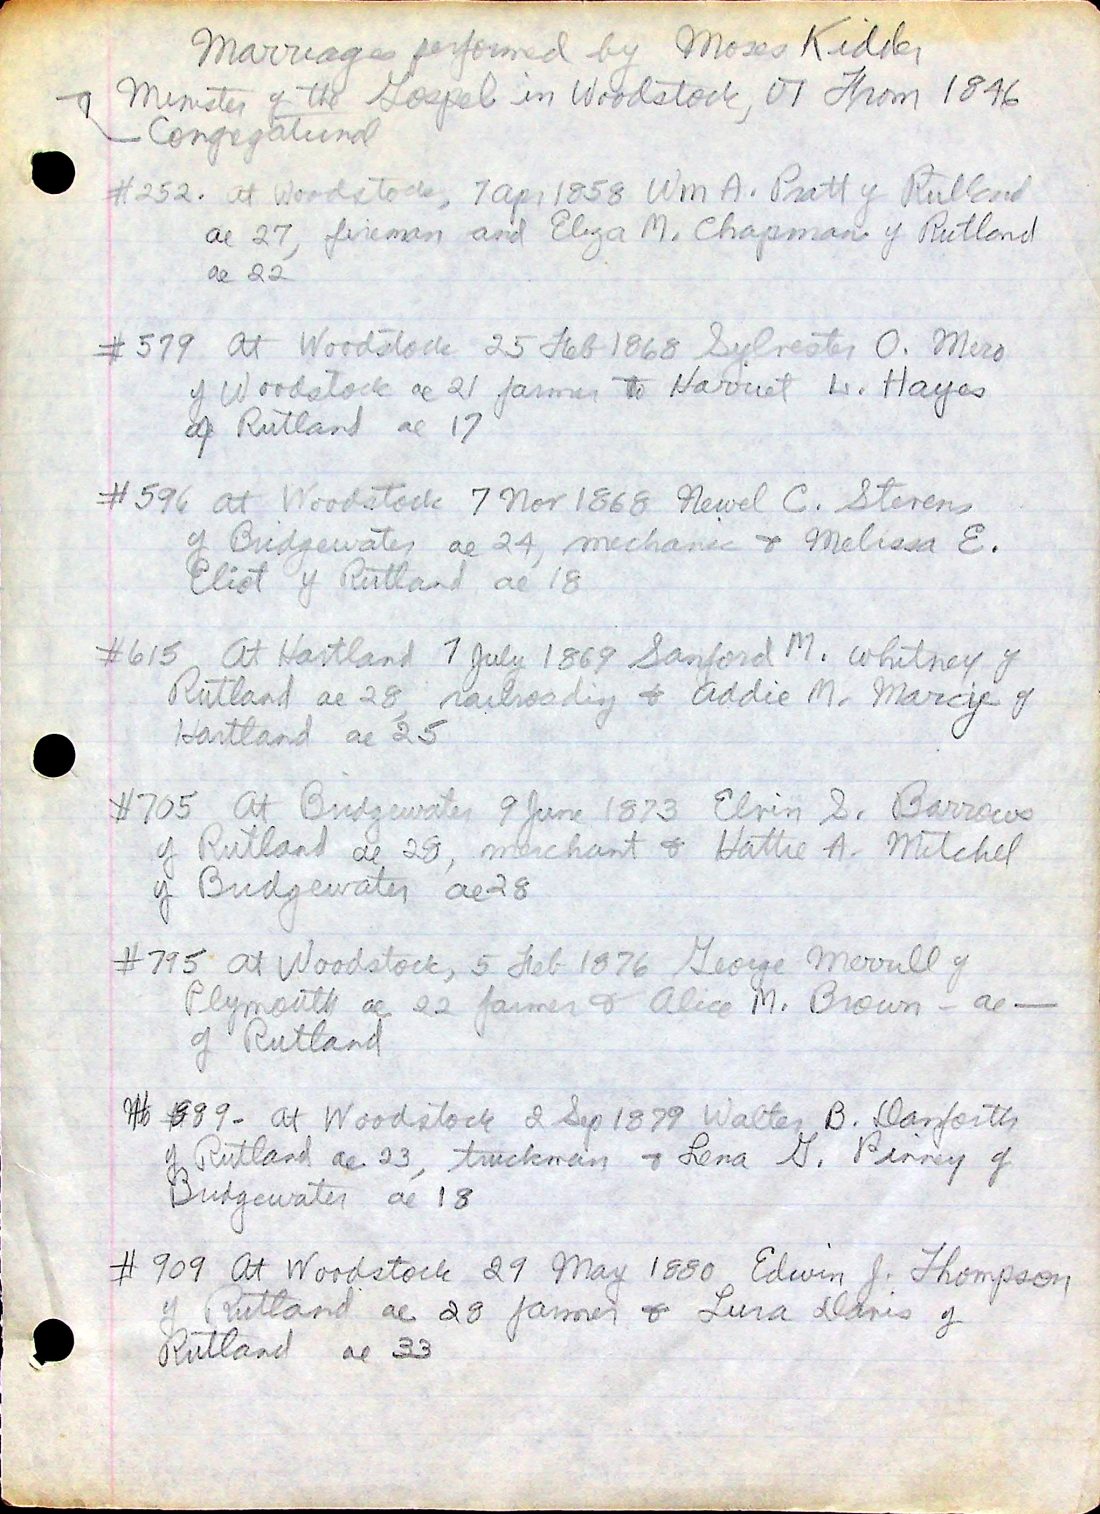 Marriages performed by Moses Kidder
Minister of the Gospel in Woodstock, VT From 1846
Congegational
#252. At Woodstock, 7 Apr 1858 Wm A. Pratt of Rutland
ae 27, fireman and Eliza M. Chapman of Rutland
ae 22
#579 At Woodstock 25 Feb 1868 Sylvester O. Mero
of Woodstock ae 21 farmer to Harriet L. Hayes
of Rutland ae 17
#596 At Woodstock 7 Nov 1868 Newel C. Stevens
of Bridgewater ae 24, mechanic & Melissa E.
Eliot of Rutland ae 18
#615 At Hartland 7 July 1869 Sanford M. Whitney of
Rutland ae 28, railroading & Addie M. Marcy of
Hartland ae 25
#705 At Bridgewater 9 June 1873 Elvin S. Barrows
of Rutland ae 28, merchant & Hattie A. Mitchel
of Bridgewater ae 28
#795 At Woodstock, 5 Feb 1876 George Merrill of
Plymouth ae 22 farmer & Alice M. Brown - ae —
of Rutland
# 889- At Woodstock 2 Sep 1879 Walter B. Danforth
of Rutland ae 23, truckman & Lena G. Pinney of
Bridgewater ae 18
# 909 At Woodstock 29 May 1880 Edwin J. Thompson
of Rutland ae 28 farmer & Lura Davis of
Rutland ae 33